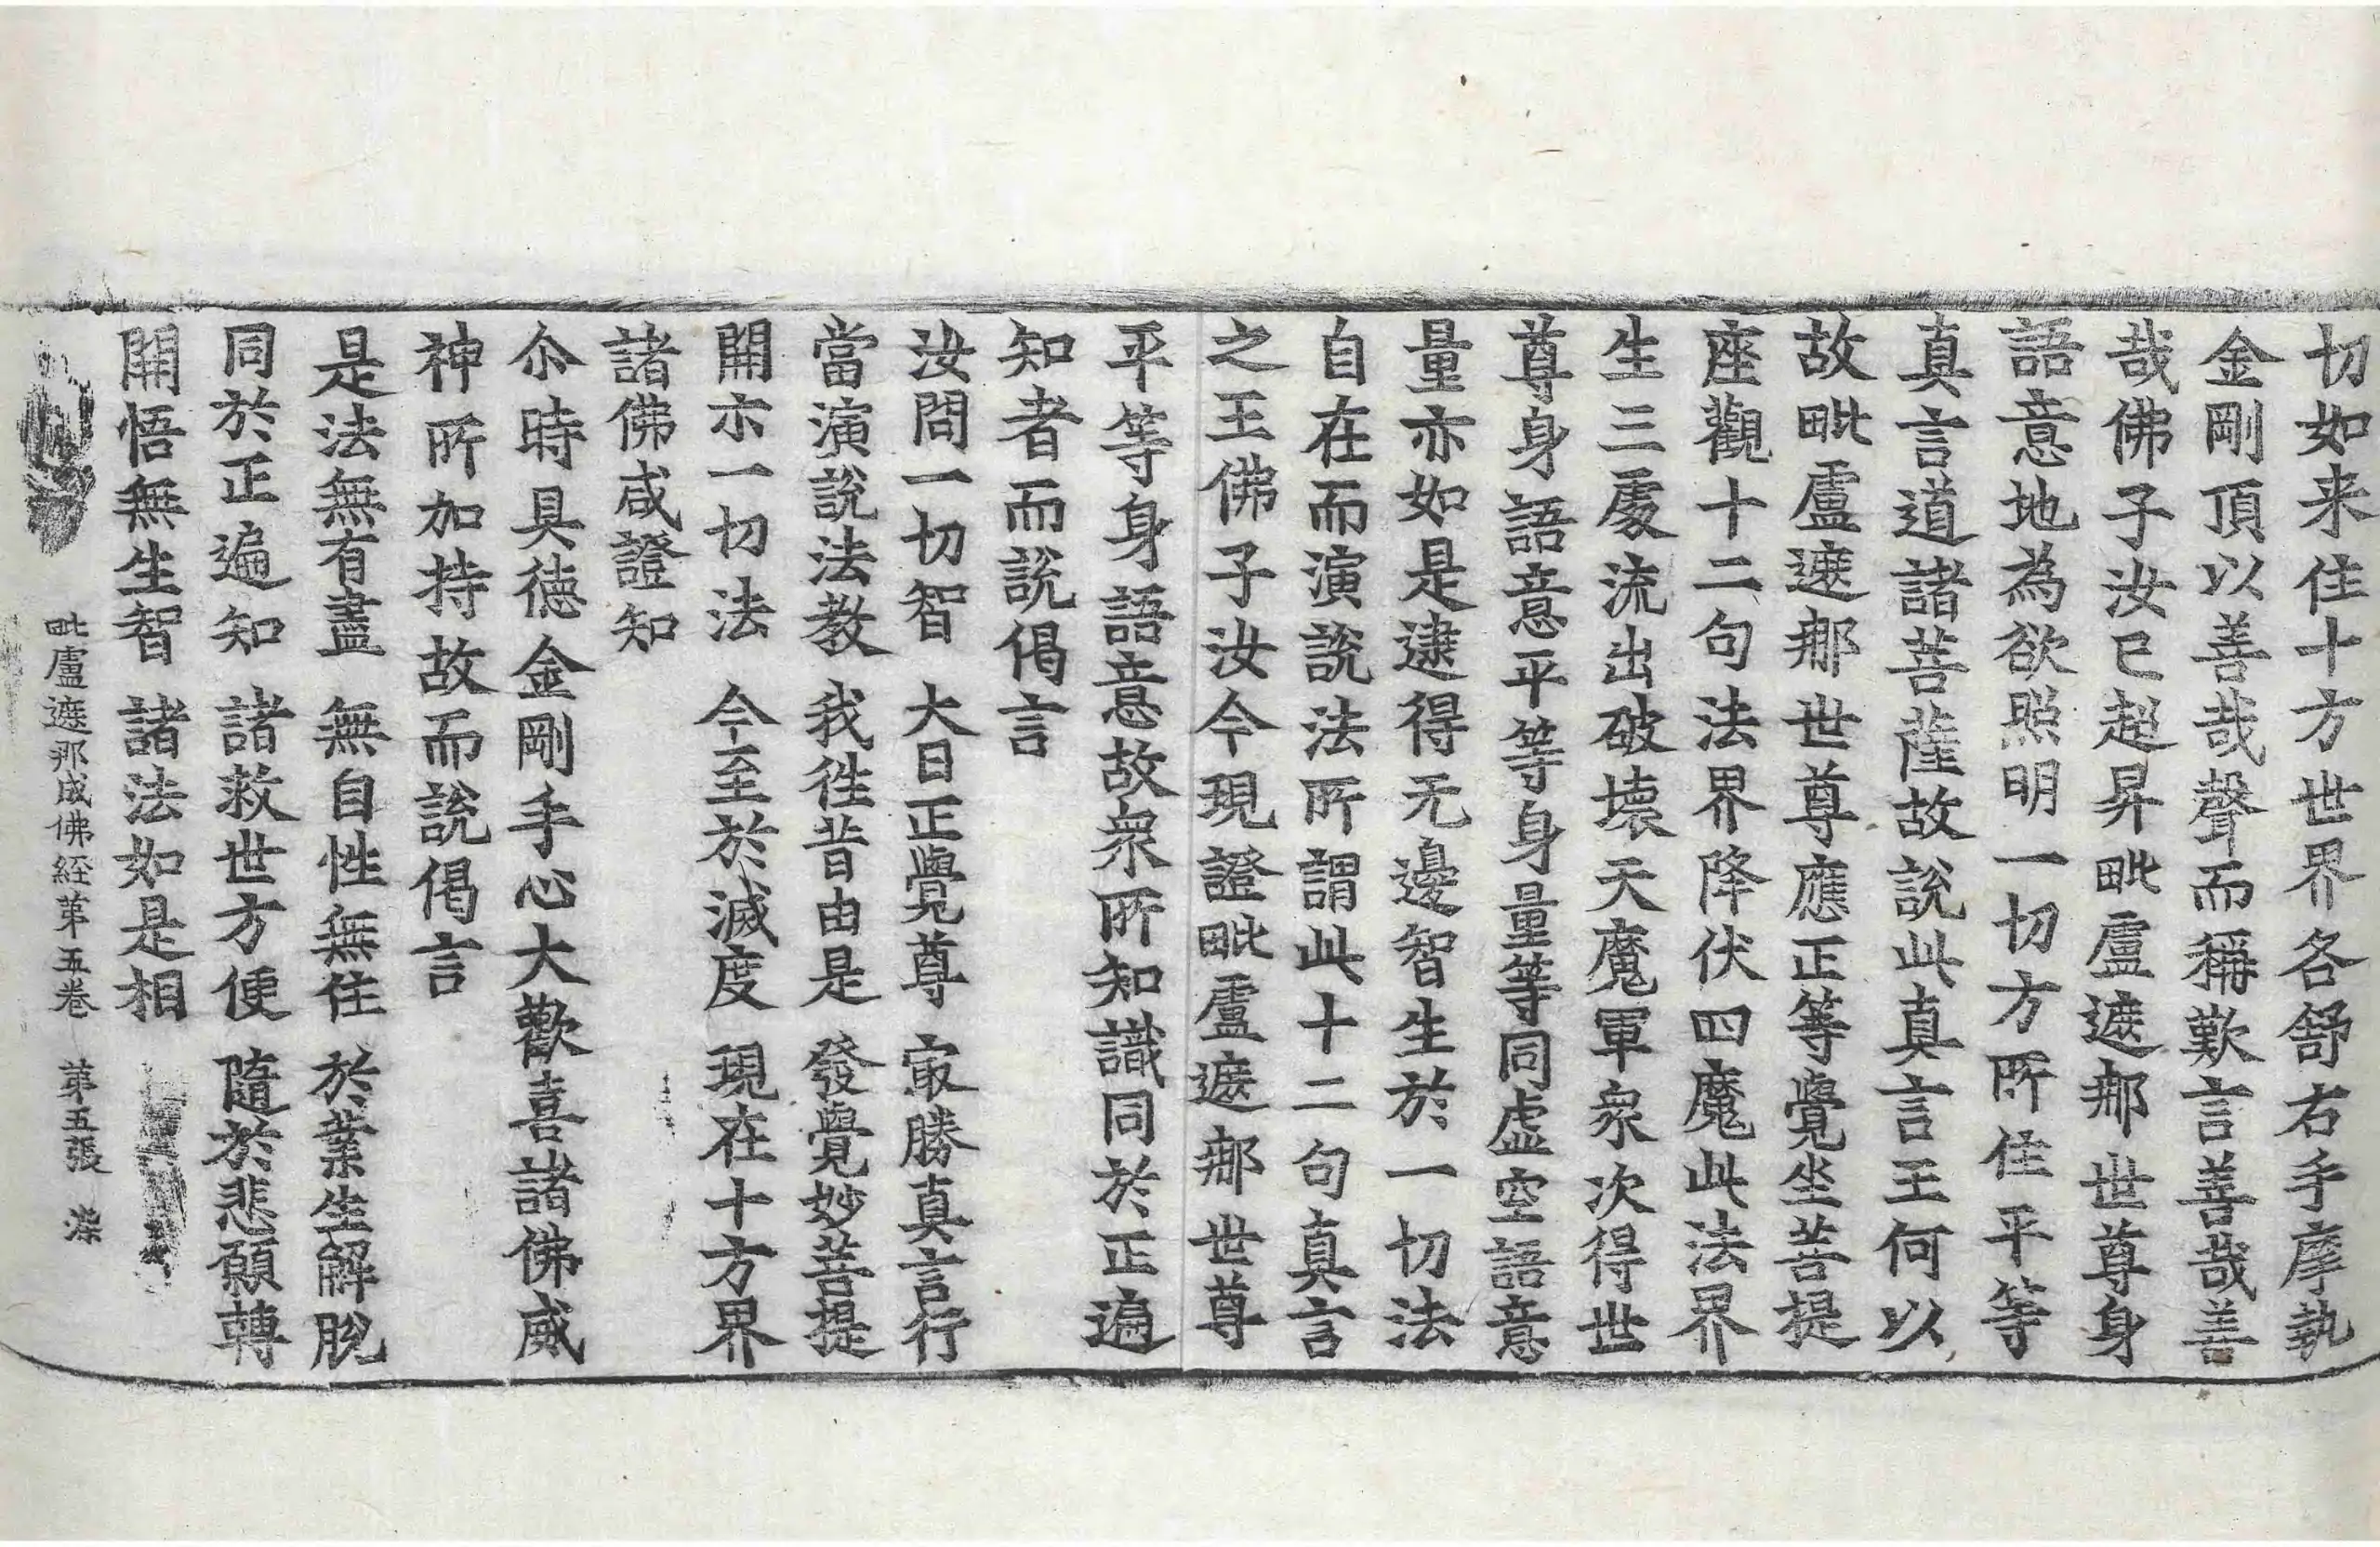 切如来住十方世界各舒右手摩執
金剛頂以善哉聲而稱歎言善哉善
哉佛子汝已超昇毗盧遮那世尊身
語意地為欲照明一切方所住平等
真言道諸菩薩故說此真言王何以
故毗盧遮那世尊應正等覺坐菩提
座觀十二句法界降伏四魔此法界
生三處流出破壞天魔軍衆次得世
尊身語意平等身量等同虛空語意
量亦如是逮得无邊智生於一切法
自在而演說法所謂此十二句真言
之王佛子汝今現證毗盧遮那世尊
平等身語意故衆所知識同於正遍
知者而說偈言
汝問一切智 大日正覺尊 冣勝真言行
當演說法教 我徃昔由是 發覺妙菩提
開示一切法 今至於滅度 現在十方界
諸佛咸證知
尒時具德金剛手心大歡喜諸佛威
神所加持故而說偈言
是法無有盡 無自性無住 於業生解脫
同於正遍知 諸救世方便 隨於悲願轉
開悟無生智 諸法如是相
毗盧遮那成佛經第五卷 第五張 染